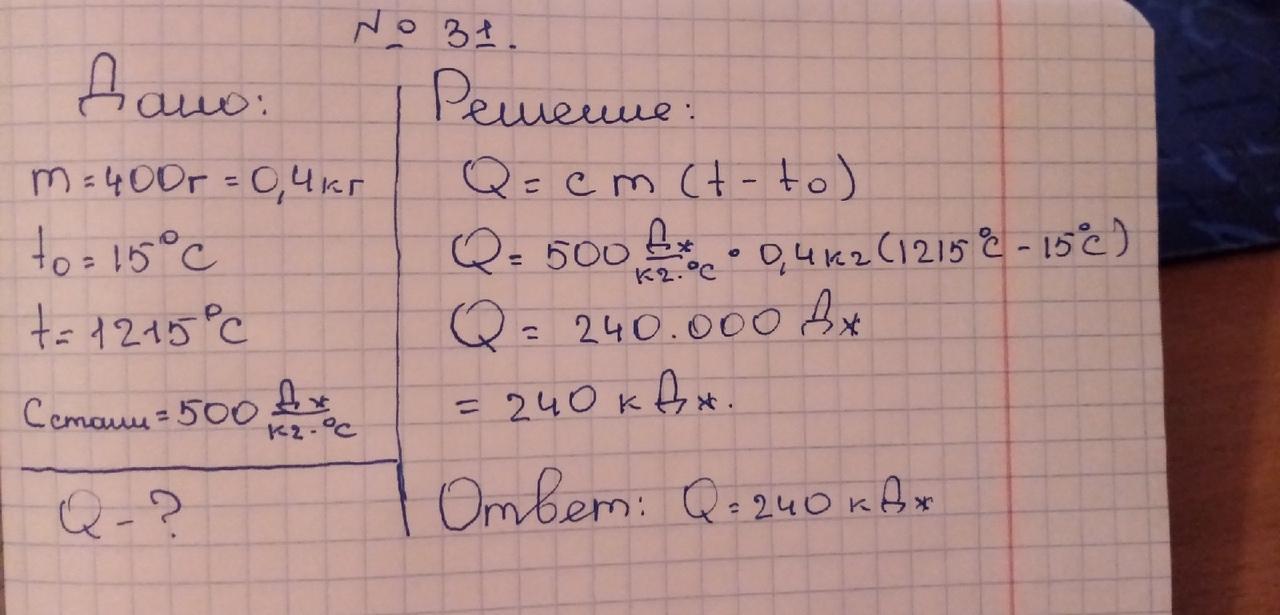 № 31.
Дано:
m = 400г = 0,4кг
t₀ = 15°C
t = 1215°C
Cстали = 500 Дж/кг·°C
Q - ?
Решение:
Q = cm (t - t₀)
Q = 500 Дж/кг·°C · 0,4кг (1215°C - 15°C)
Q = 240.000 Дж
= 240 кДж.
Ответ: Q = 240 кДж